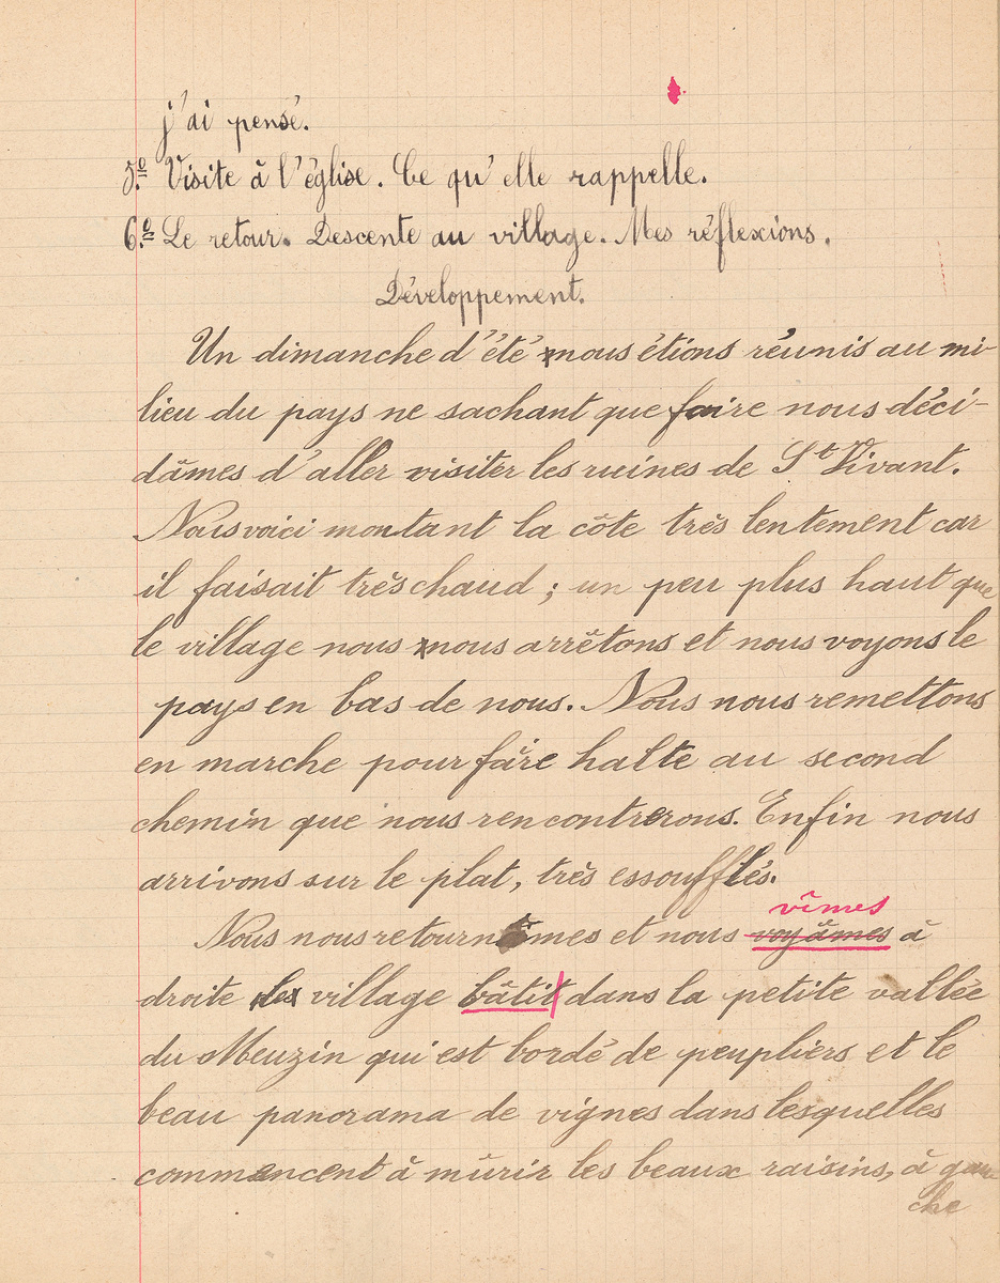 j'ai pensé.
5º. Visite à l'église. Ce qu'elle rappelle.
6º. Le retour. Descente au village. Mes réflexions.
Développement.
Un dimanche d'été nous étions réunis au mi-
lieu du pays ne sachant que faire nous déci-
dâmes d'aller visiter les ruines de St Vivant.
Nous voici montant la côte très lentement car
il faisait très chaud ; un peu plus haut que
le village nous nous arrêtons et nous voyons le
pays en bas de nous. Nous nous remettons
en marche pour faire halte au second
chemin que nous rencontrerons. Enfin nous
arrivons sur le plat, très essoufflés.
vîmes
Nous nous retournâmes et nous voyâmes à
droite le village bâtit dans la petite vallée
du Meuzin qui est bordé de peupliers et le
beau panorama de vignes dans lesquelles
commencent à mûrir les beaux raisins, à gau
che